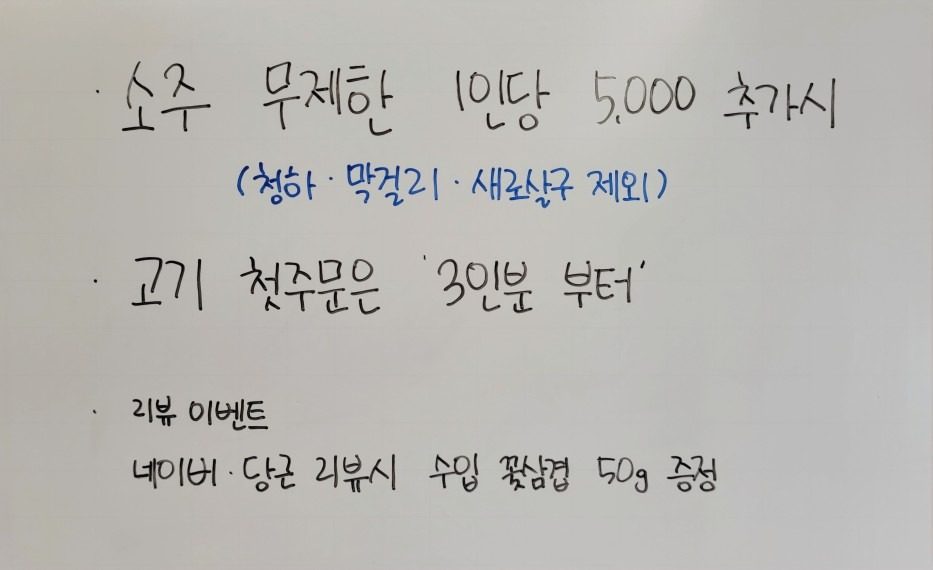 · 소주 무제한 1인당 5,000 추가시
(청하 · 막걸리 · 새로살구 제외)
· 고기 첫주문은 '3인분 부터'
· 리뷰 이벤트
네이버 · 당근 리뷰시 수입 꽃삼겹 50g 증정